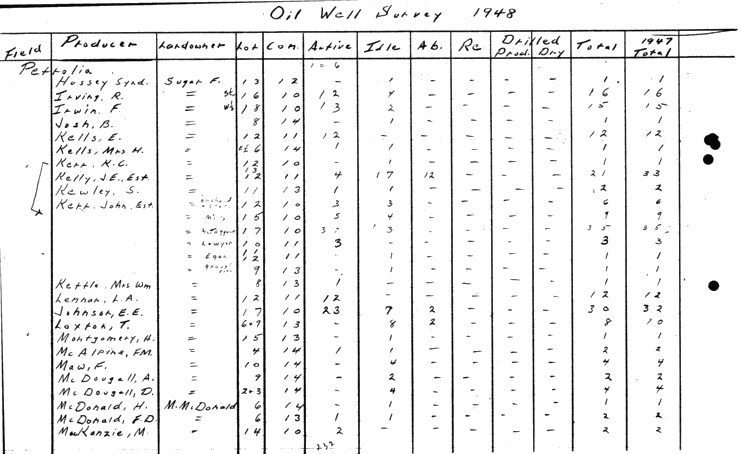 Oil Well Survey 1948
Field Producer Landowner Lot Con. Active Idle Ab. Re Drilled Prod. Dry Total 1947 Total
Petrolia 106
Hussey Synd. Sugar F. 13 12 – 1 – – – – 1 1
Irving, R. = st 16 10 12 4 – – – – 16 16
Irwin, F. = W½ 18 10 13 2 – – – – 15 15
Josh, B. = 8 14 – 1 – – – – 1 1
Kells, E. = 12 11 12 – – – – – 12 12
Kells, Mrs H. = 6 14 1 – – – – 1 1
Kerr, K.G. = 12 10 – 1 – – – – 1 1
Kelly, J.E., Est. = 13 12 11 4 17 12 – – – 21 33
Kewley, S. = 11 13 1 1 – – – – 2 2
Kerr, John, Est. = 12 10 3 3 – – – – 6 6
= 15 10 5 4 – – – – 9 9
= McTaggart 17 10 3 – – – – 35 35
= Lawyer 10 11 3 – – – – – 3 3
= Egan 11 12 11 – 1 – – – – 1 1
= 9 13 – 1 – – – – 1 1
Kettle, Mrs Wm = 8 13 1 – – – – – 1 1
Lennon, L.A. = 12 11 12 – – – – – 12 12
Johnson, E.E. = 17 10 23 7 2 – – – 30 32
Loxton, T. = 6+7 13 – 8 2 – – – 8 10
Montgomery, H. = 15 13 – 1 – – – – 1 1
McAlpine, F.M. = 4 14 1 1 – – – – 2 2
Maw, F. = 10 14 – 4 – – – – 4 4
McDougall, A. = 9 14 – 2 – – – – 2 2
McDougall, D. = 2+3 14 – 4 – – – – 4 4
McDonald, H. M. McDonald 6 14 – 1 – – – – 1 1
McDonald, F.D. = 6 13 1 1 – – – – 2 2
MacKenzie, M. " 14 10 2 – – – – – 2 2
232